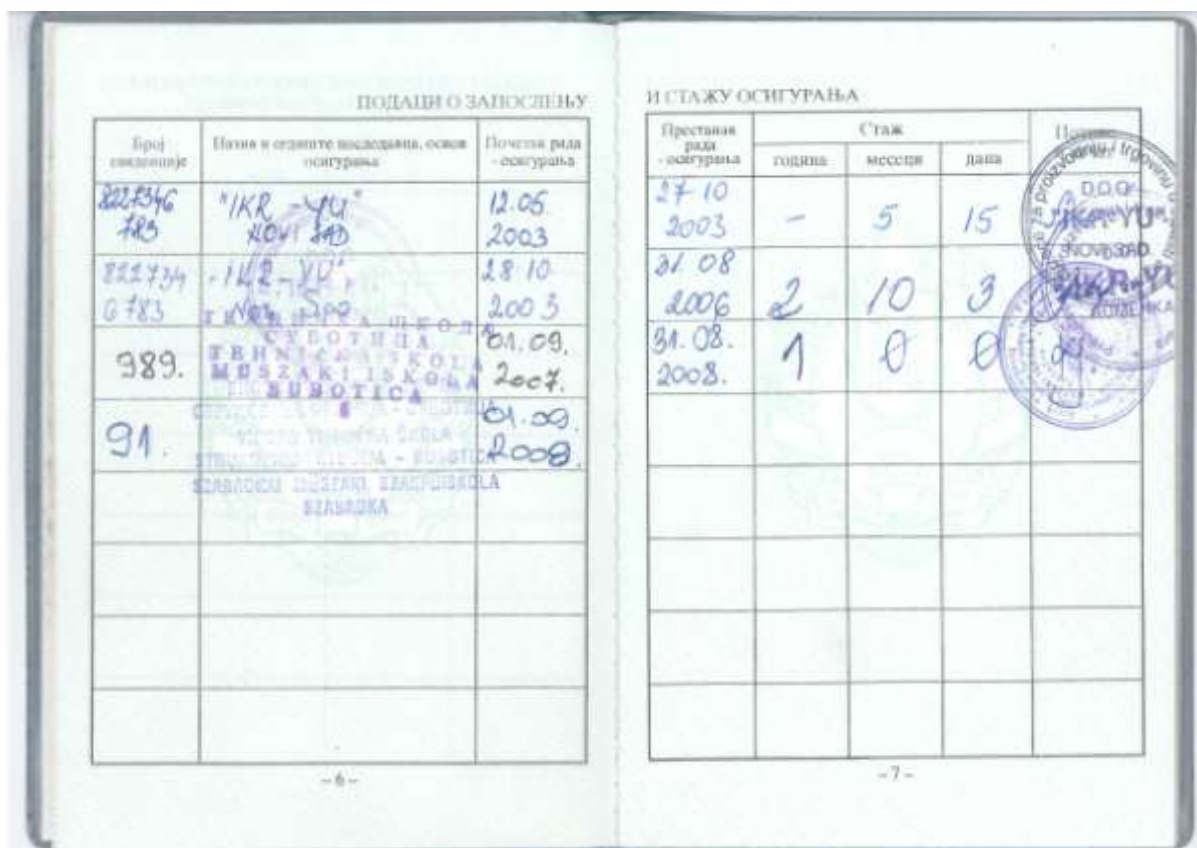 ПОДАЦИ О ЗАПОСЛЕЊУ
Број евиденције
Назив и седиште послодавца, основ осигурања
Почетак рада - осигурања
8227346
783
"IKR -YU"
NOVI SAD
12.05
2003
822734
6783
"IKR-YU"
28 10
2003
989.
ТЕХНИЧКА ШКОЛА
СУБОТИЦА
TEHNIČKA ŠKOLA
MŰSZAKI ISKOLA
SUBOTICA
01.09.
2007.
91.
SUBOTICA
SZABADKAI MŰSZAKI SZAKFŐISKOLA
SZABADKA
01.09.
2008.
– 6 –
И СТАЖУ ОСИГУРАЊА
Престанак рада - осигурања
Стаж
година
месеци
дана
27 10
2003
-
5
15
31. 08
2006
2
10
3
31.08.
2008.
1
0
0
D.O.O.
"IKR-YU"
NOVI SAD
– 7 –